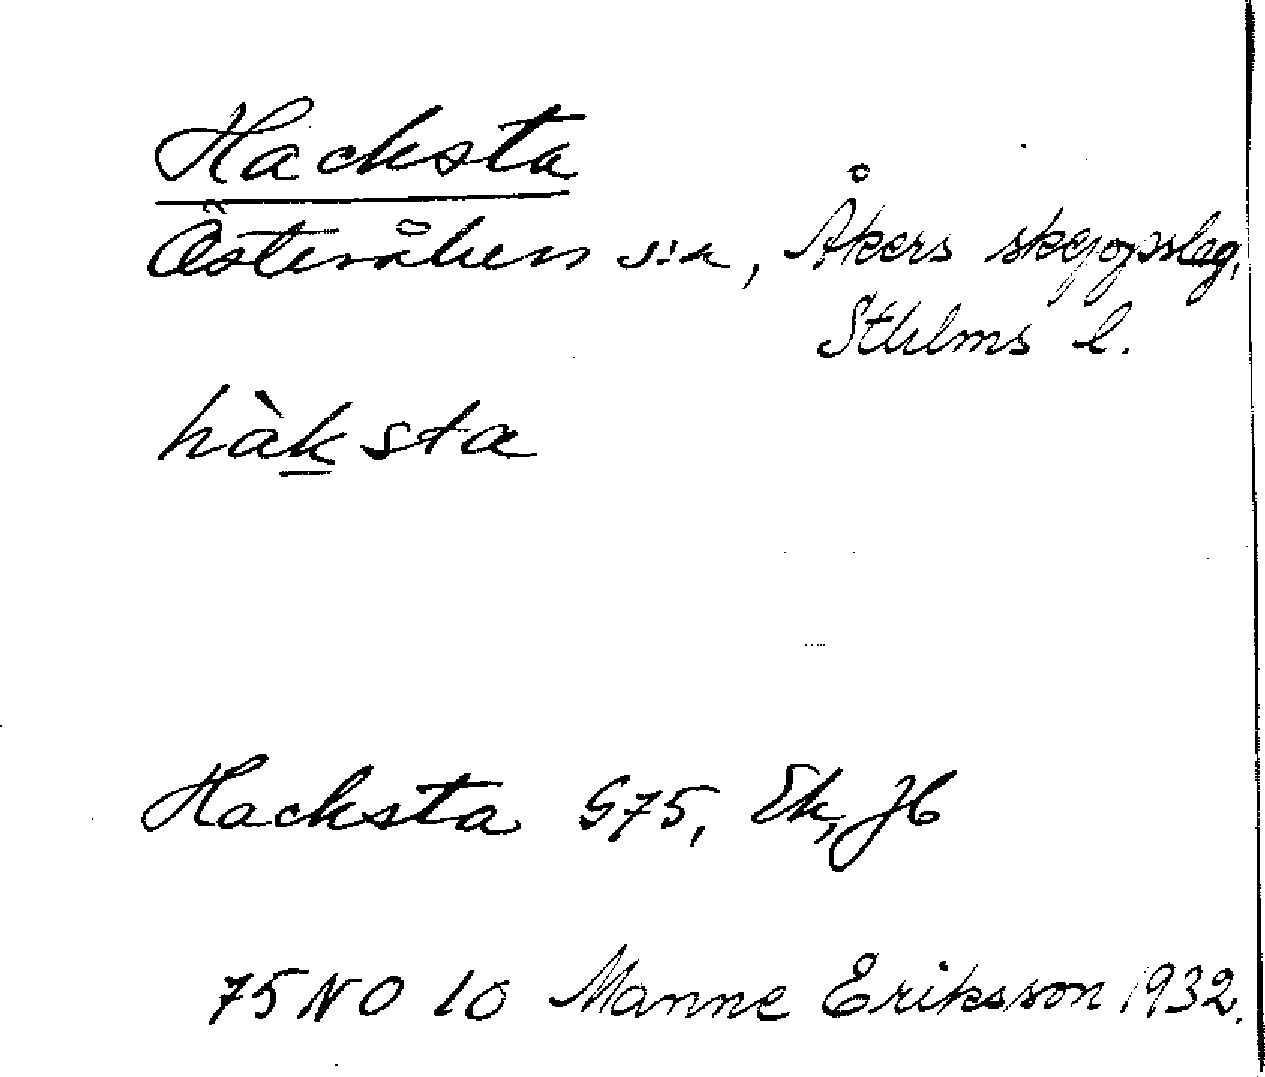 Hacksta
Österåkers s:n, Åkers skeppslag,
Sthlms l.
hàksta
Hacksta G75, Ek, Jb
75 NO 10 Manne Eriksson 1932.